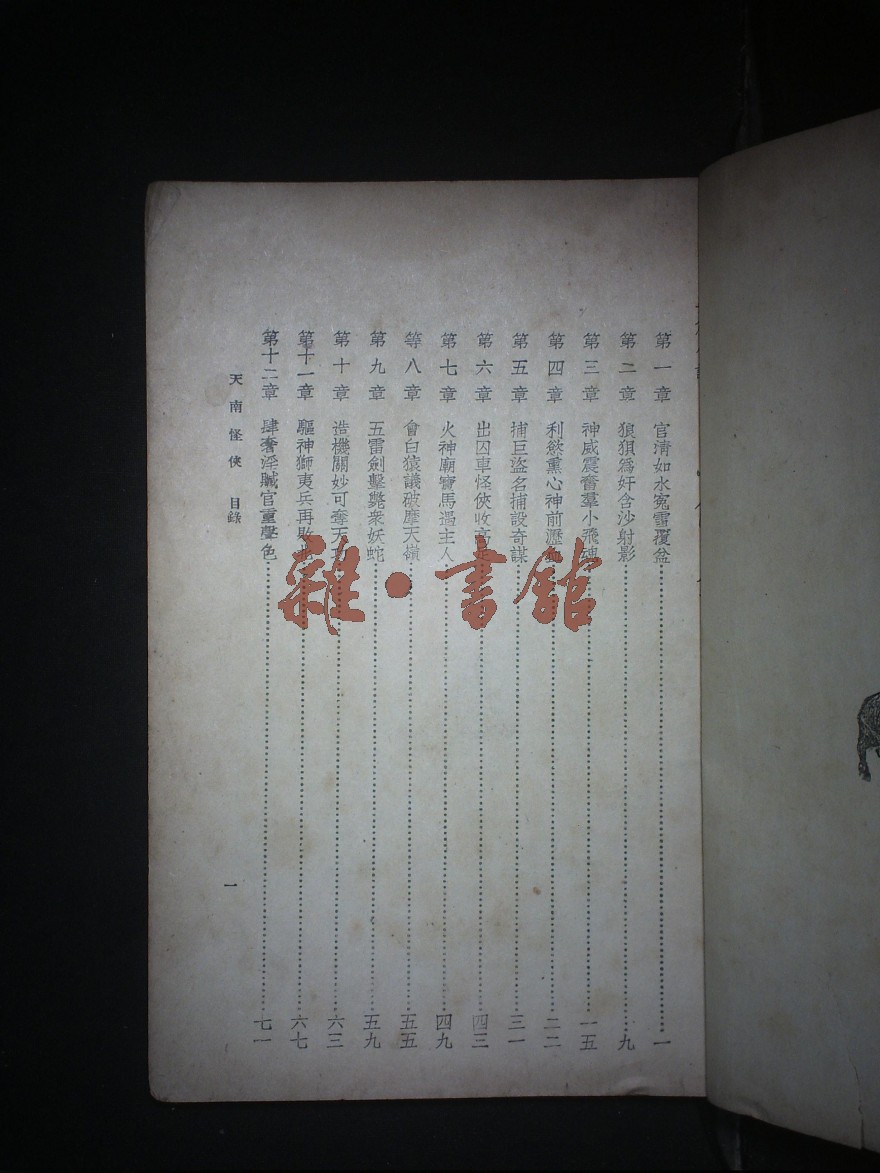 第一章 官淸如水寃雪覆盆……一
第二章 狼狽爲奸含沙射影……九
第三章 神威震奮羣小飛魂……一五
第四章 利慾熏心神前瀝血……二二
第五章 捕巨盜名捕設奇謀……三一
第六章 出囚車怪俠收高足……四三
第七章 火神廟寶馬遇主人……四九
等八章 會白猿議破摩天嶺……五五
第九章 五雷劍擊斃衆妖蛇……五九
第十章 造機關妙可奪天工……六三
第十一章 驅神獅夷兵再敗……六七
第十二章 肆奢淫贓官重聲色……七一
天南怪俠 目錄
一
雜·書館